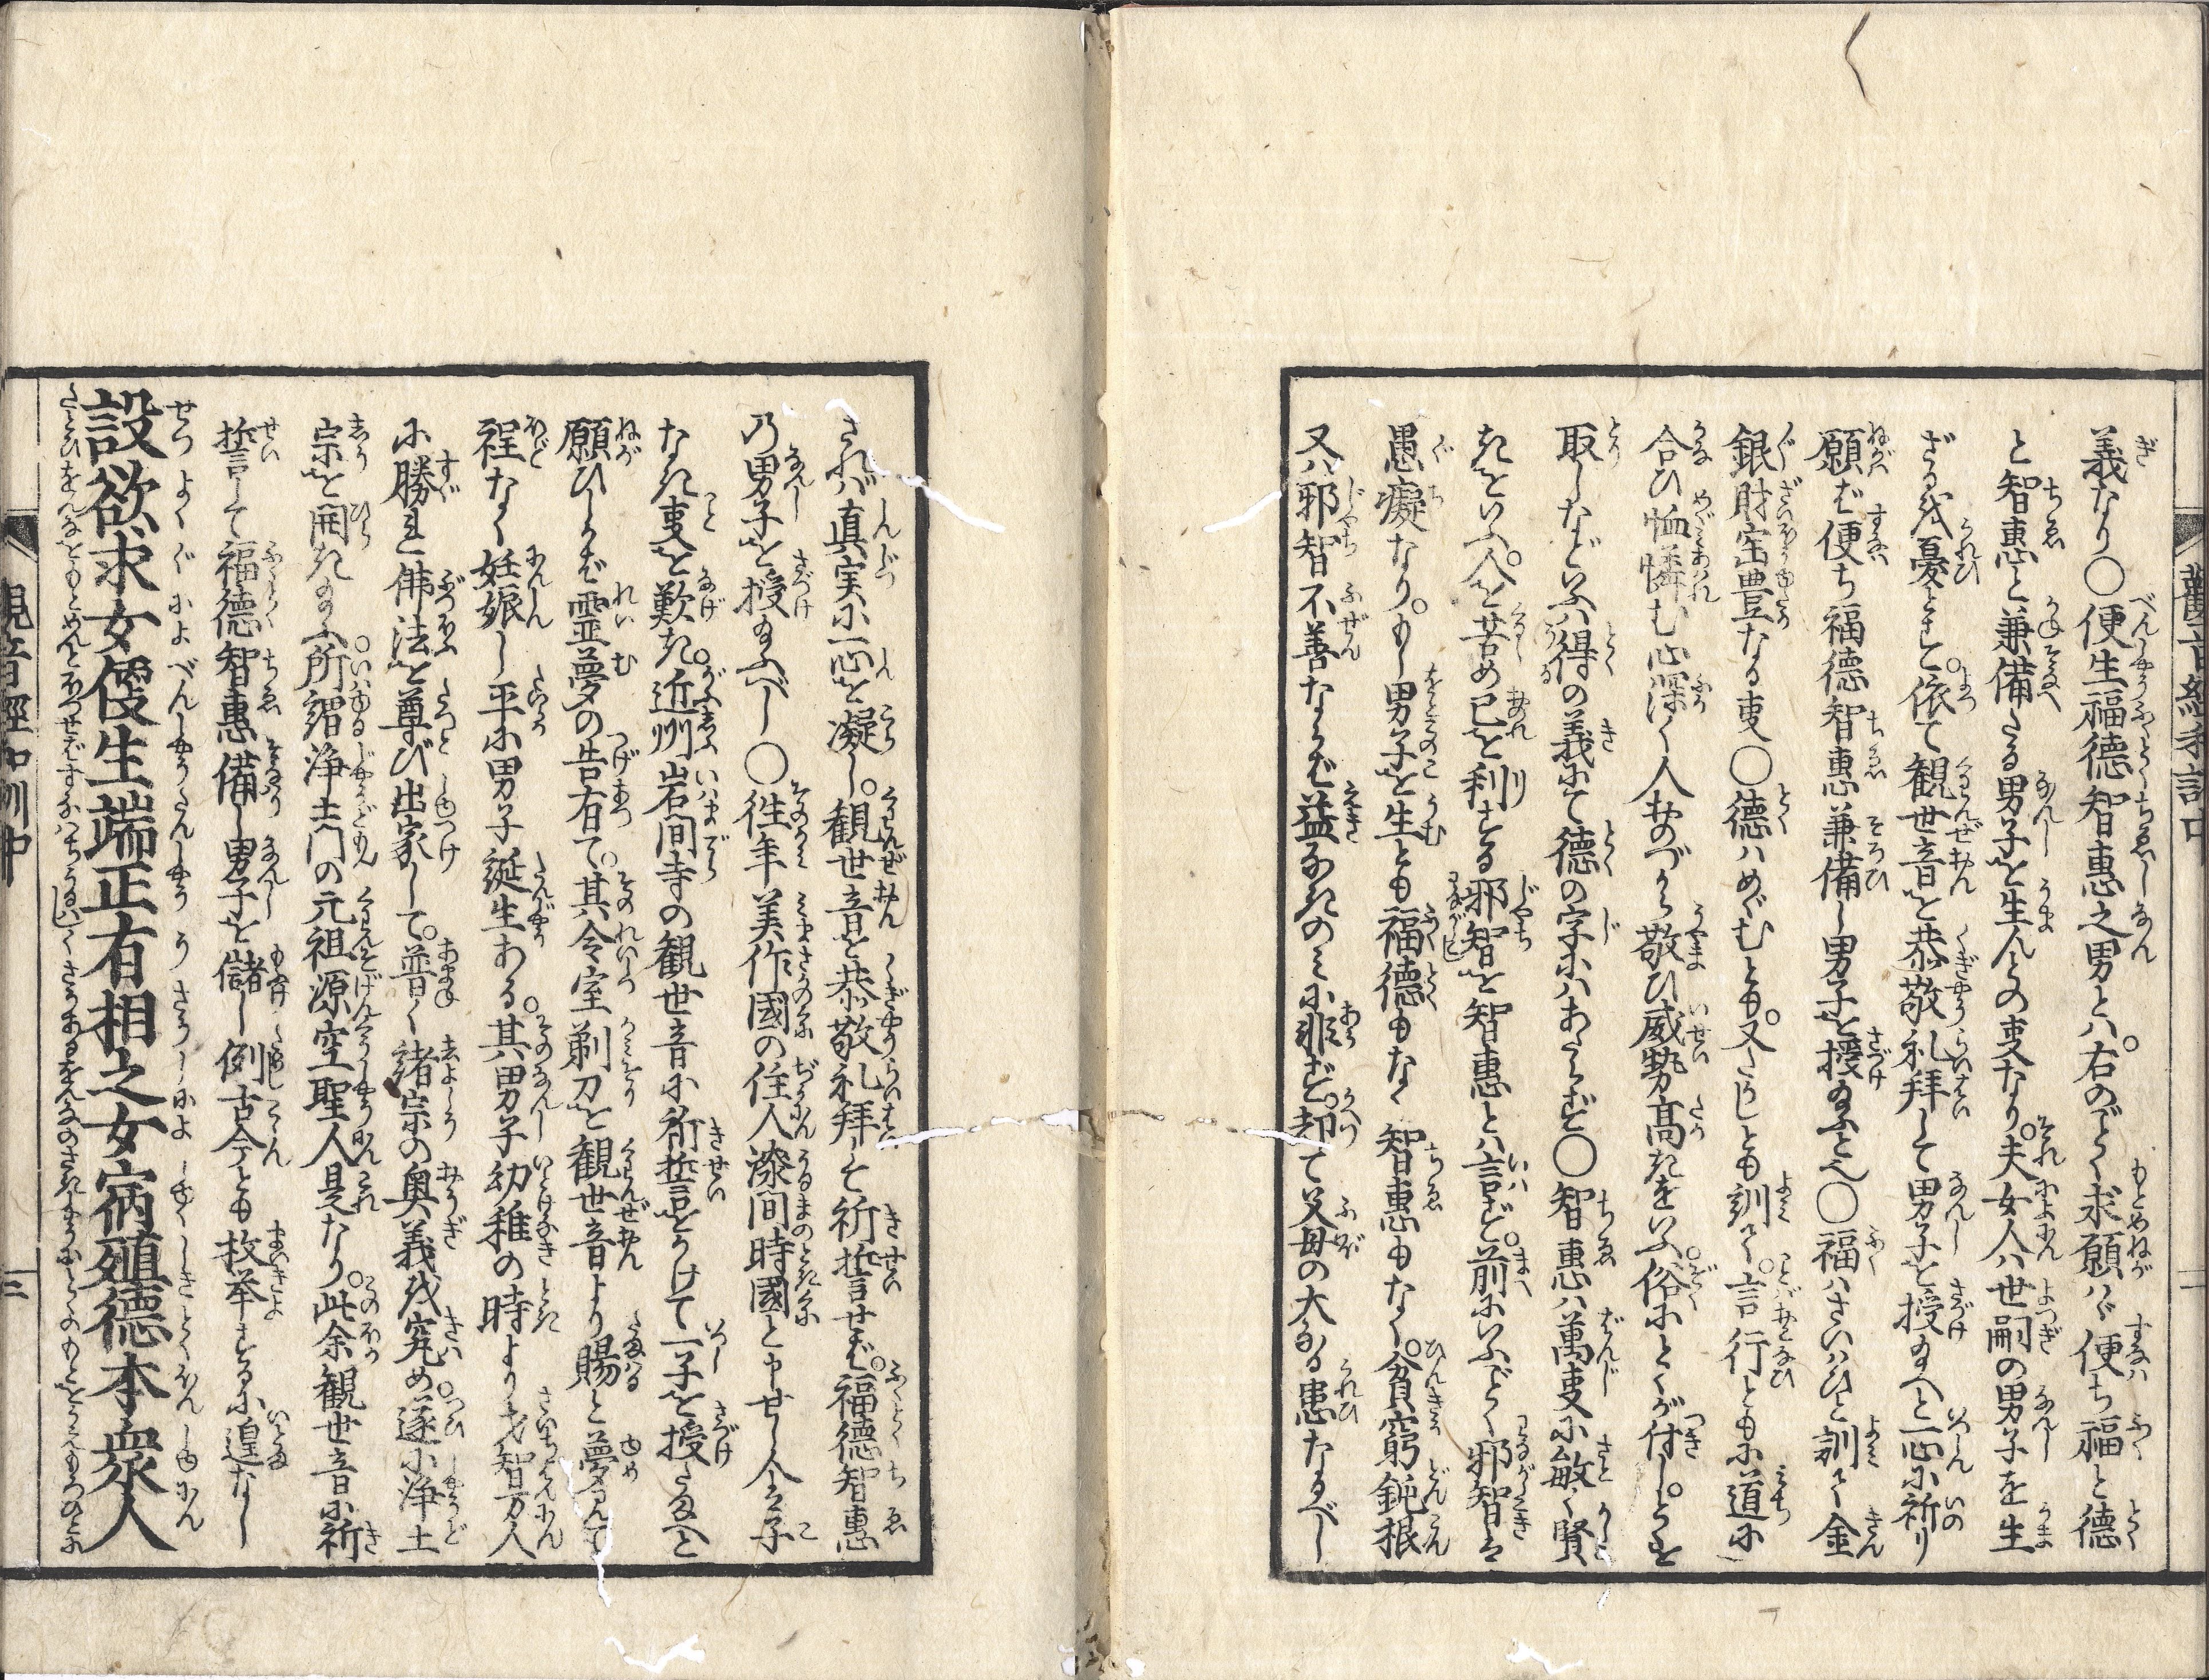 観音経和訓中
二
義なり○便生福徳智惠之男とハ。右のごとく求願ハヾ便ち福と徳
と智惠と兼備たる男子を生んとの叓なり。夫女人ハ世嗣の男子を生
ざるを憂とす。依て観世音を恭敬礼拜して男子を授給へと一心に祈り
願ば便ち福徳智惠兼備し男子を授給ふと也○福ハさいハひと訓て金
銀財宝豊なる叓○徳ハめぐむとも。又たゞしとも訓て。言行ともに道に
合ひ恤憐む心深く人おのづから敬ひ威勢高きをいふ。俗にとくが付し。とくを
取しなどいふハ得の義にて徳の字にハあらず○智惠ハ萬叓に敏く賢
きをいふ。人を苦め己を利する邪智を智惠とハ言ず。前にいふごとく邪智は
愚癡なり。もし男子を生とも福徳もなく智惠もなく。貧窮鈍根
又ハ邪智不善ならば益なきのミに非ず。却て父母の大なる患たるべし
されバ真実に一心を凝し。観世音を恭敬礼拜して祈誓せば。福徳智惠
乃男子を授給ふべし○往年美作國の住人漆間時國と申せし人子
なき叓を歎き。近州岩間寺の観世音に祈誓をかけて一子を授たまへと
願ひしかば霊夢の告有て。其令室剃刀を観世音より賜と夢見て
程なく妊娠し平に男子誕生ある。其男子幼稚の時より才智万人
に勝れ佛法を尊び出家して。普く諸宗の奥義を究め。遂に浄土
宗を開き給ふ。所謂浄土門の元祖源空聖人是なり。此余観世音に祈
誓して福徳智惠備し男子を儲し例古今とも枚挙するに遑なし
設欲求女便生端正有相之女宿殖徳本衆人
たとひをんなをもとめんとほつせばすなハちうるハしくさうあるをんなのさきにまうふとくのもとをうえもろひとに
観音經和訓中
三